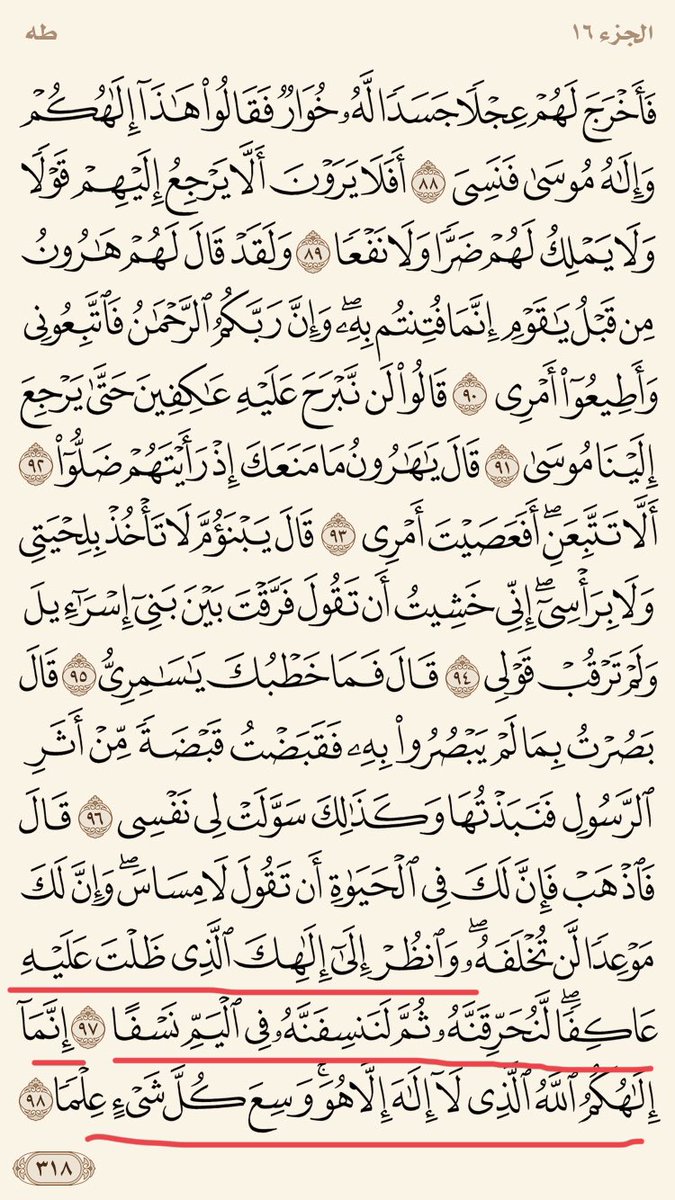 الجزء ١٦ طه
فَأَخْرَجَ لَهُمْ عِجْلًا جَسَدًا لَّهُۥ خُوَارٌ فَقَالُوا۟ هَـٰذَآ إِلَـٰهُكُمْ
وَإِلَـٰهُ مُوسَىٰ فَنَسِىَ ٨٨ أَفَلَا يَرَوْنَ أَلَّا يَرْجِعُ إِلَيْهِمْ قَوْلًا
وَلَا يَمْلِكُ لَهُمْ ضَرًّا وَلَا نَفْعًا ٨٩ وَلَقَدْ قَالَ لَهُمْ هَـٰرُونُ
مِن قَبْلُ يَـٰقَوْمِ إِنَّمَا فُتِنتُم بِهِۦۖ وَإِنَّ رَبَّكُمُ ٱلرَّحْمَـٰنُ فَٱتَّبِعُونِى
وَأَطِيعُوٓا۟ أَمْرِى ٩٠ قَالُوا۟ لَن نَّبْرَحَ عَلَيْهِ عَـٰكِفِينَ حَتَّىٰ يَرْجِعَ
إِلَيْنَا مُوسَىٰ ٩١ قَالَ يَـٰهَـٰرُونُ مَا مَنَعَكَ إِذْ رَأَيْتَهُمْ ضَلُّوٓا۟ ٩٢
أَلَّا تَتَّبِعَنِۖ أَفَعَصَيْتَ أَمْرِى ٩٣ قَالَ يَبْنَؤُمَّ لَا تَأْخُذْ بِلِحْيَتِى
وَلَا بِرَأْسِىٓۖ إِنِّى خَشِيتُ أَن تَقُولَ فَرَّقْتَ بَيْنَ بَنِىٓ إِسْرَٰٓءِيلَ
وَلَمْ تَرْقُبْ قَوْلِى ٩٤ قَالَ فَمَا خَطْبُكَ يَـٰسَـٰمِرِىُّ ٩٥ قَالَ
بَصُرْتُ بِمَا لَمْ يَبْصُرُوا۟ بِهِۦ فَقَبَضْتُ قَبْضَةً مِّنْ أَثَرِ
ٱلرَّسُولِ فَنَبَذْتُهَا وَكَذَٰلِكَ سَوَّلَتْ لِى نَفْسِى ٩٦ قَالَ
فَٱذْهَبْ فَإِنَّ لَكَ فِى ٱلْحَيَوٰةِ أَن تَقُولَ لَا مِسَاسَۖ وَإِنَّ لَكَ
مَوْعِدًا لَّن تُخْلَفَهُۥۖ وَٱنظُرْ إِلَىٰٓ إِلَـٰهِكَ ٱلَّذِى ظَلْتَ عَلَيْهِ
عَاكِفًاۖ لَّنُحَرِّقَنَّهُۥ ثُمَّ لَنَنسِفَنَّهُۥ فِى ٱلْيَمِّ نَسْفًا ٩٧ إِنَّمَآ
إِلَـٰهُكُمُ ٱللَّهُ ٱلَّذِى لَآ إِلَـٰهَ إِلَّا هُوَۚ وَسِعَ كُلَّ شَىْءٍ عِلْمًا ٩٨
٣١٨